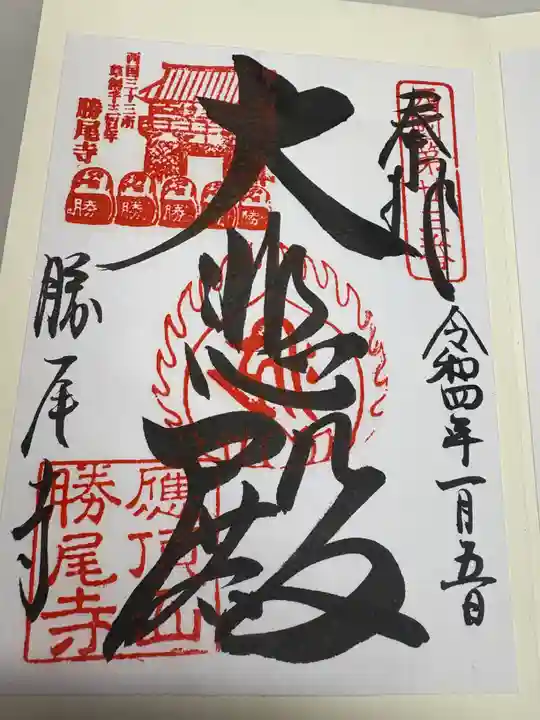 奉拝
令和四年一月五日
大悲殿
西国三十三所
草創千三百年
勝尾寺
勝
勝
勝
勝
勝
勝尾寺
應頂山
勝尾寺